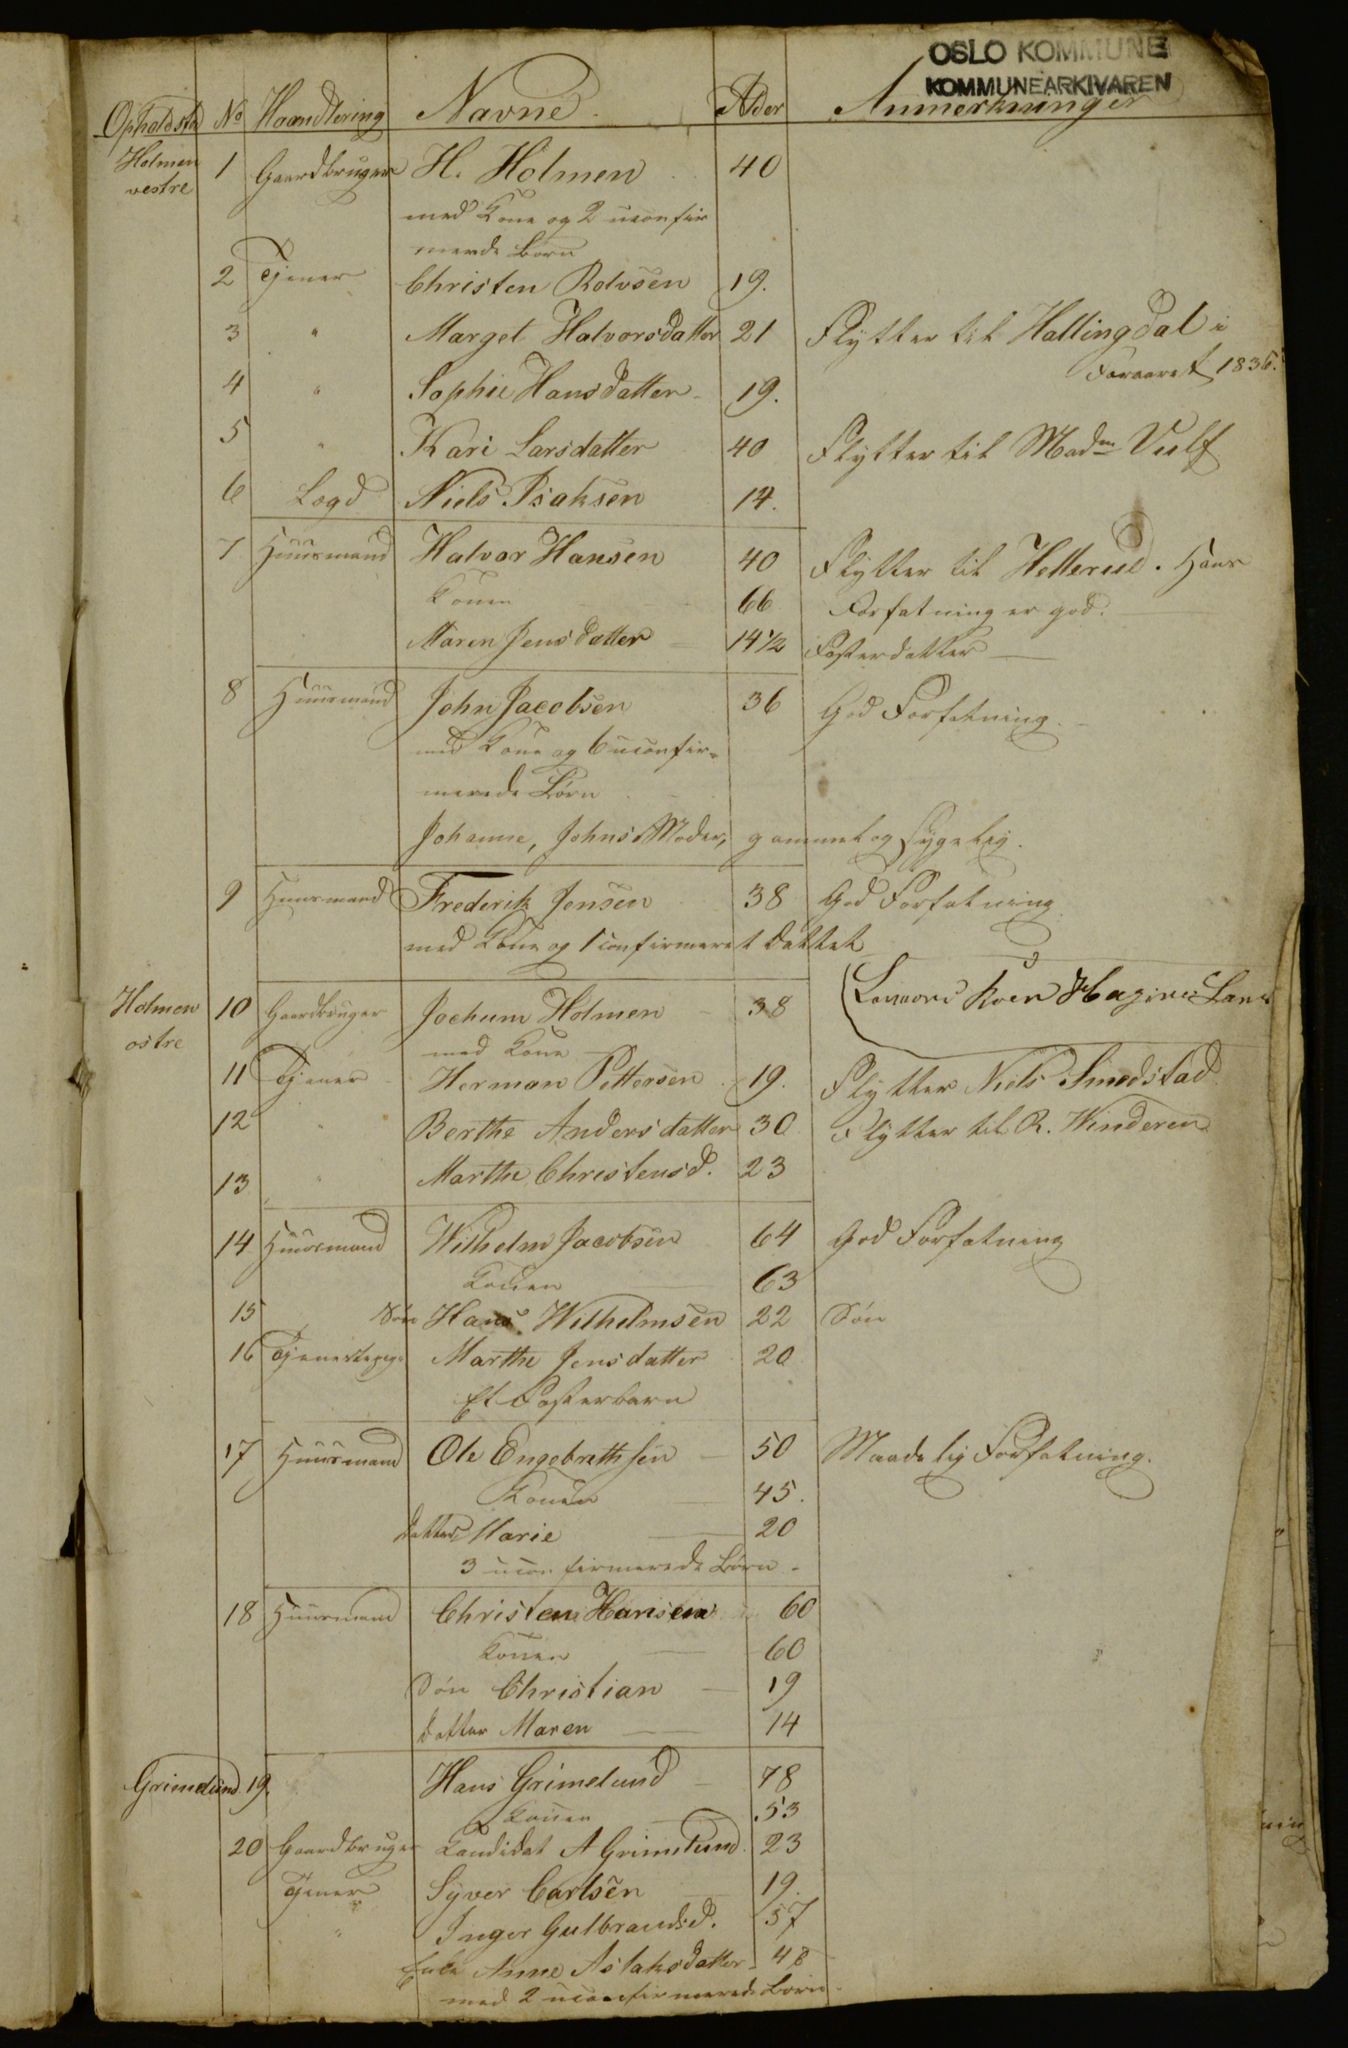 OSLO KOMMUNE
KOMMUNEARKIVAREN
Opholdsted No Haandtering Navne Alder Anmerkninger
Holmen vestre 1 Gaardbruger H. Holmen 40
med Kone og 2 uconfir
merede Børn
2 Tjener Christen Rolvsen 19.
3 " Marget Halvorsdatter 21 Flytter til Hallingdal i
Foraaret 1836.
4 " Sophie Hansdatter 19.
5 " Kari Larsdatter 40 Flytter til Madm Vulf
6 Logd Niels Isaksen 14.
7 Huusmand Halvor Hansen 40 Flytter til Hellerud. Hans
Konen 66 Forfatning er god.
Maren Jensdatter 14 1/2 Fosterdatter
8 Huusmand John Jacobsen 36 God Forfatning.
med Kone og 6 uconfir-
merede Børn
Johanne, Johns Moder, gammel og sygelig.
9 Huusmand Frederik Jensen 38 God Forfatning
med Kone og 1 confirmeret Datter
Holmen ostre 10 Gaardbruger Jochum Holmen 38
med Kone
11 Tjener Herman Pettersen 19. Flytter Niels Smedstad
12 " Berthe Andersdatter 30 Flytter til R. Winderen
13 " Marthe Christensd. 23
14 Huusmand Wilhelm Jacobsen 64 God Forfatning
Konen 63
15 Søn Hans Wilhelmsen 22 Søn
16 Tjenestepige Marthe Jensdatter 20
Et Fosterbarn
17 Huusmand Ole Engebrethsen 50 Maadelig Forfatning.
Konen 45.
Datter Marie 20
3 uconfirmerede Børn
18 Huusmand Christen Hansen 60
Konen 60
Søn Christian 19
Datter Maren 14
Grimelund 19. Hans Grimelund 78
Konen 53
20 Gaardbruger Kandidat A Grimelund 23
Tjener Syver Carlsen 19.
" Inger Gulbrandsd. 57
Enke Anne Aslaksdatter 48
med 2 uconfirmerede Børn